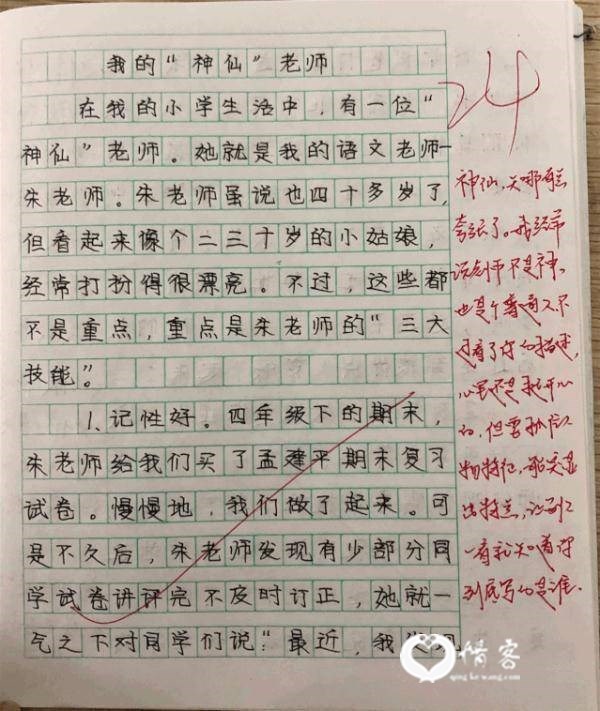 我的“神仙”老师
24
在我的小学生活中，有一位“
神仙”老师。她就是我的语文老师—
朱老师。朱老师虽说也四十多岁了，
但看起来像个二三十岁的小姑娘，
经常打扮得很漂亮。不过，这些都
不是重点，重点是朱老师的“三大
技能”。
1、记性好。四年级下的期末，
朱老师给我们买了孟建平期末复习
试卷。慢慢地，我们做了起来。可
是不久后，朱老师发现有少部分同
学试卷讲评完不及时订正，她就一
气之下对同学们说：“最近，我发现
神仙，
夸张了。我经常
说老师不是神、
也是个普通人。不
过看了你的描述，
心里还是挺开心
的，但要抓住人
物特征，
出特点，让别人
一看就知道你
到底写的是谁.
惜客
qing-ke-wang.com